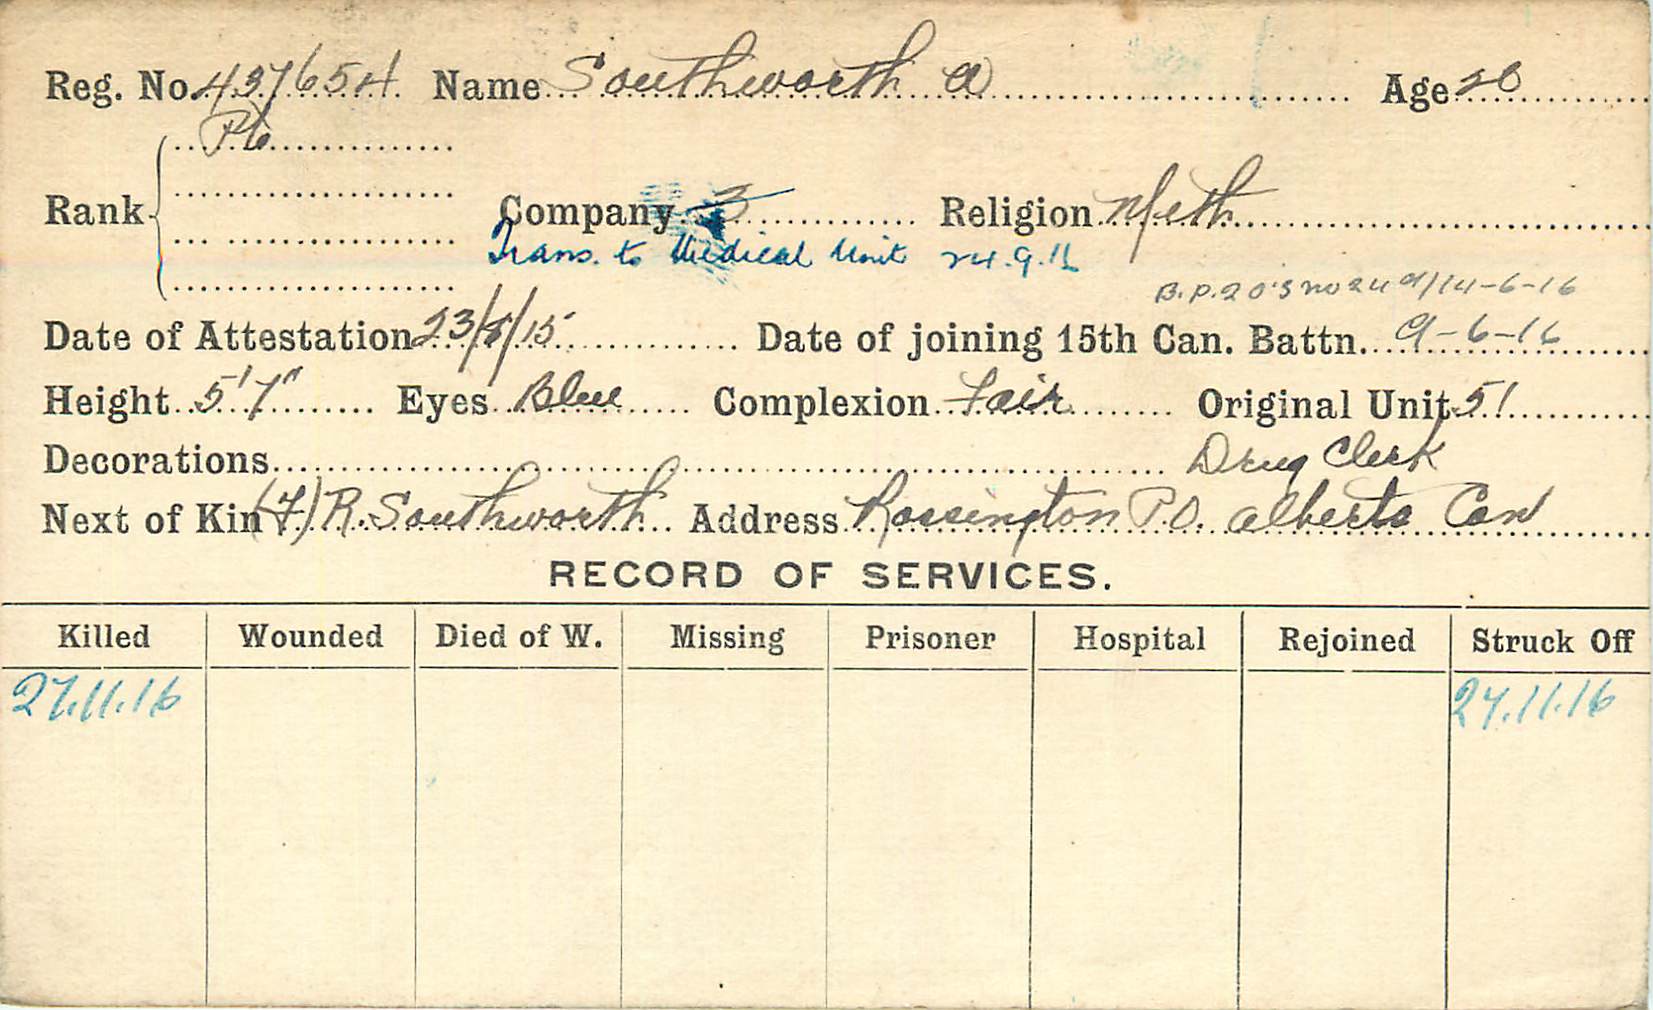 Reg. No. 437654 Name Southworth A Age 20
Rank Pte
Company 3 Religion Meth
Trans. to Medical Unit 24.9.16
B.P.2 O's no 24 d/14-6-16
Date of Attestation 23/8/15 Date of joining 15th Can. Battn. 9-6-16
Height 5'7" Eyes Blue Complexion Fair Original Unit 51
Decorations Drug Clerk
Next of Kin (F) R. Southworth Address Rossington P.O. Alberta Can
RECORD OF SERVICES.
Killed Wounded Died of W. Missing Prisoner Hospital Rejoined Struck Off
27.11.16 27.11.16